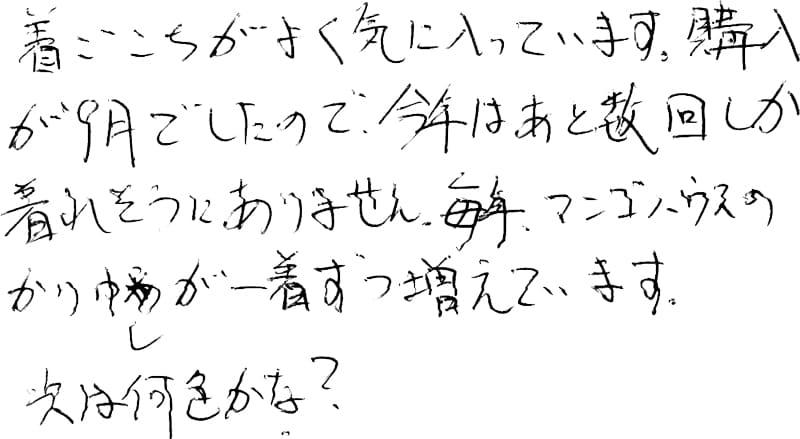 着ごこちがよく気に入っています。購入
が9月でしたので、今年はあと数回しか
着れそうにありません。毎年、マンゴハウスの
かりゆしが一着ずつ増えています。
次は何色かな?